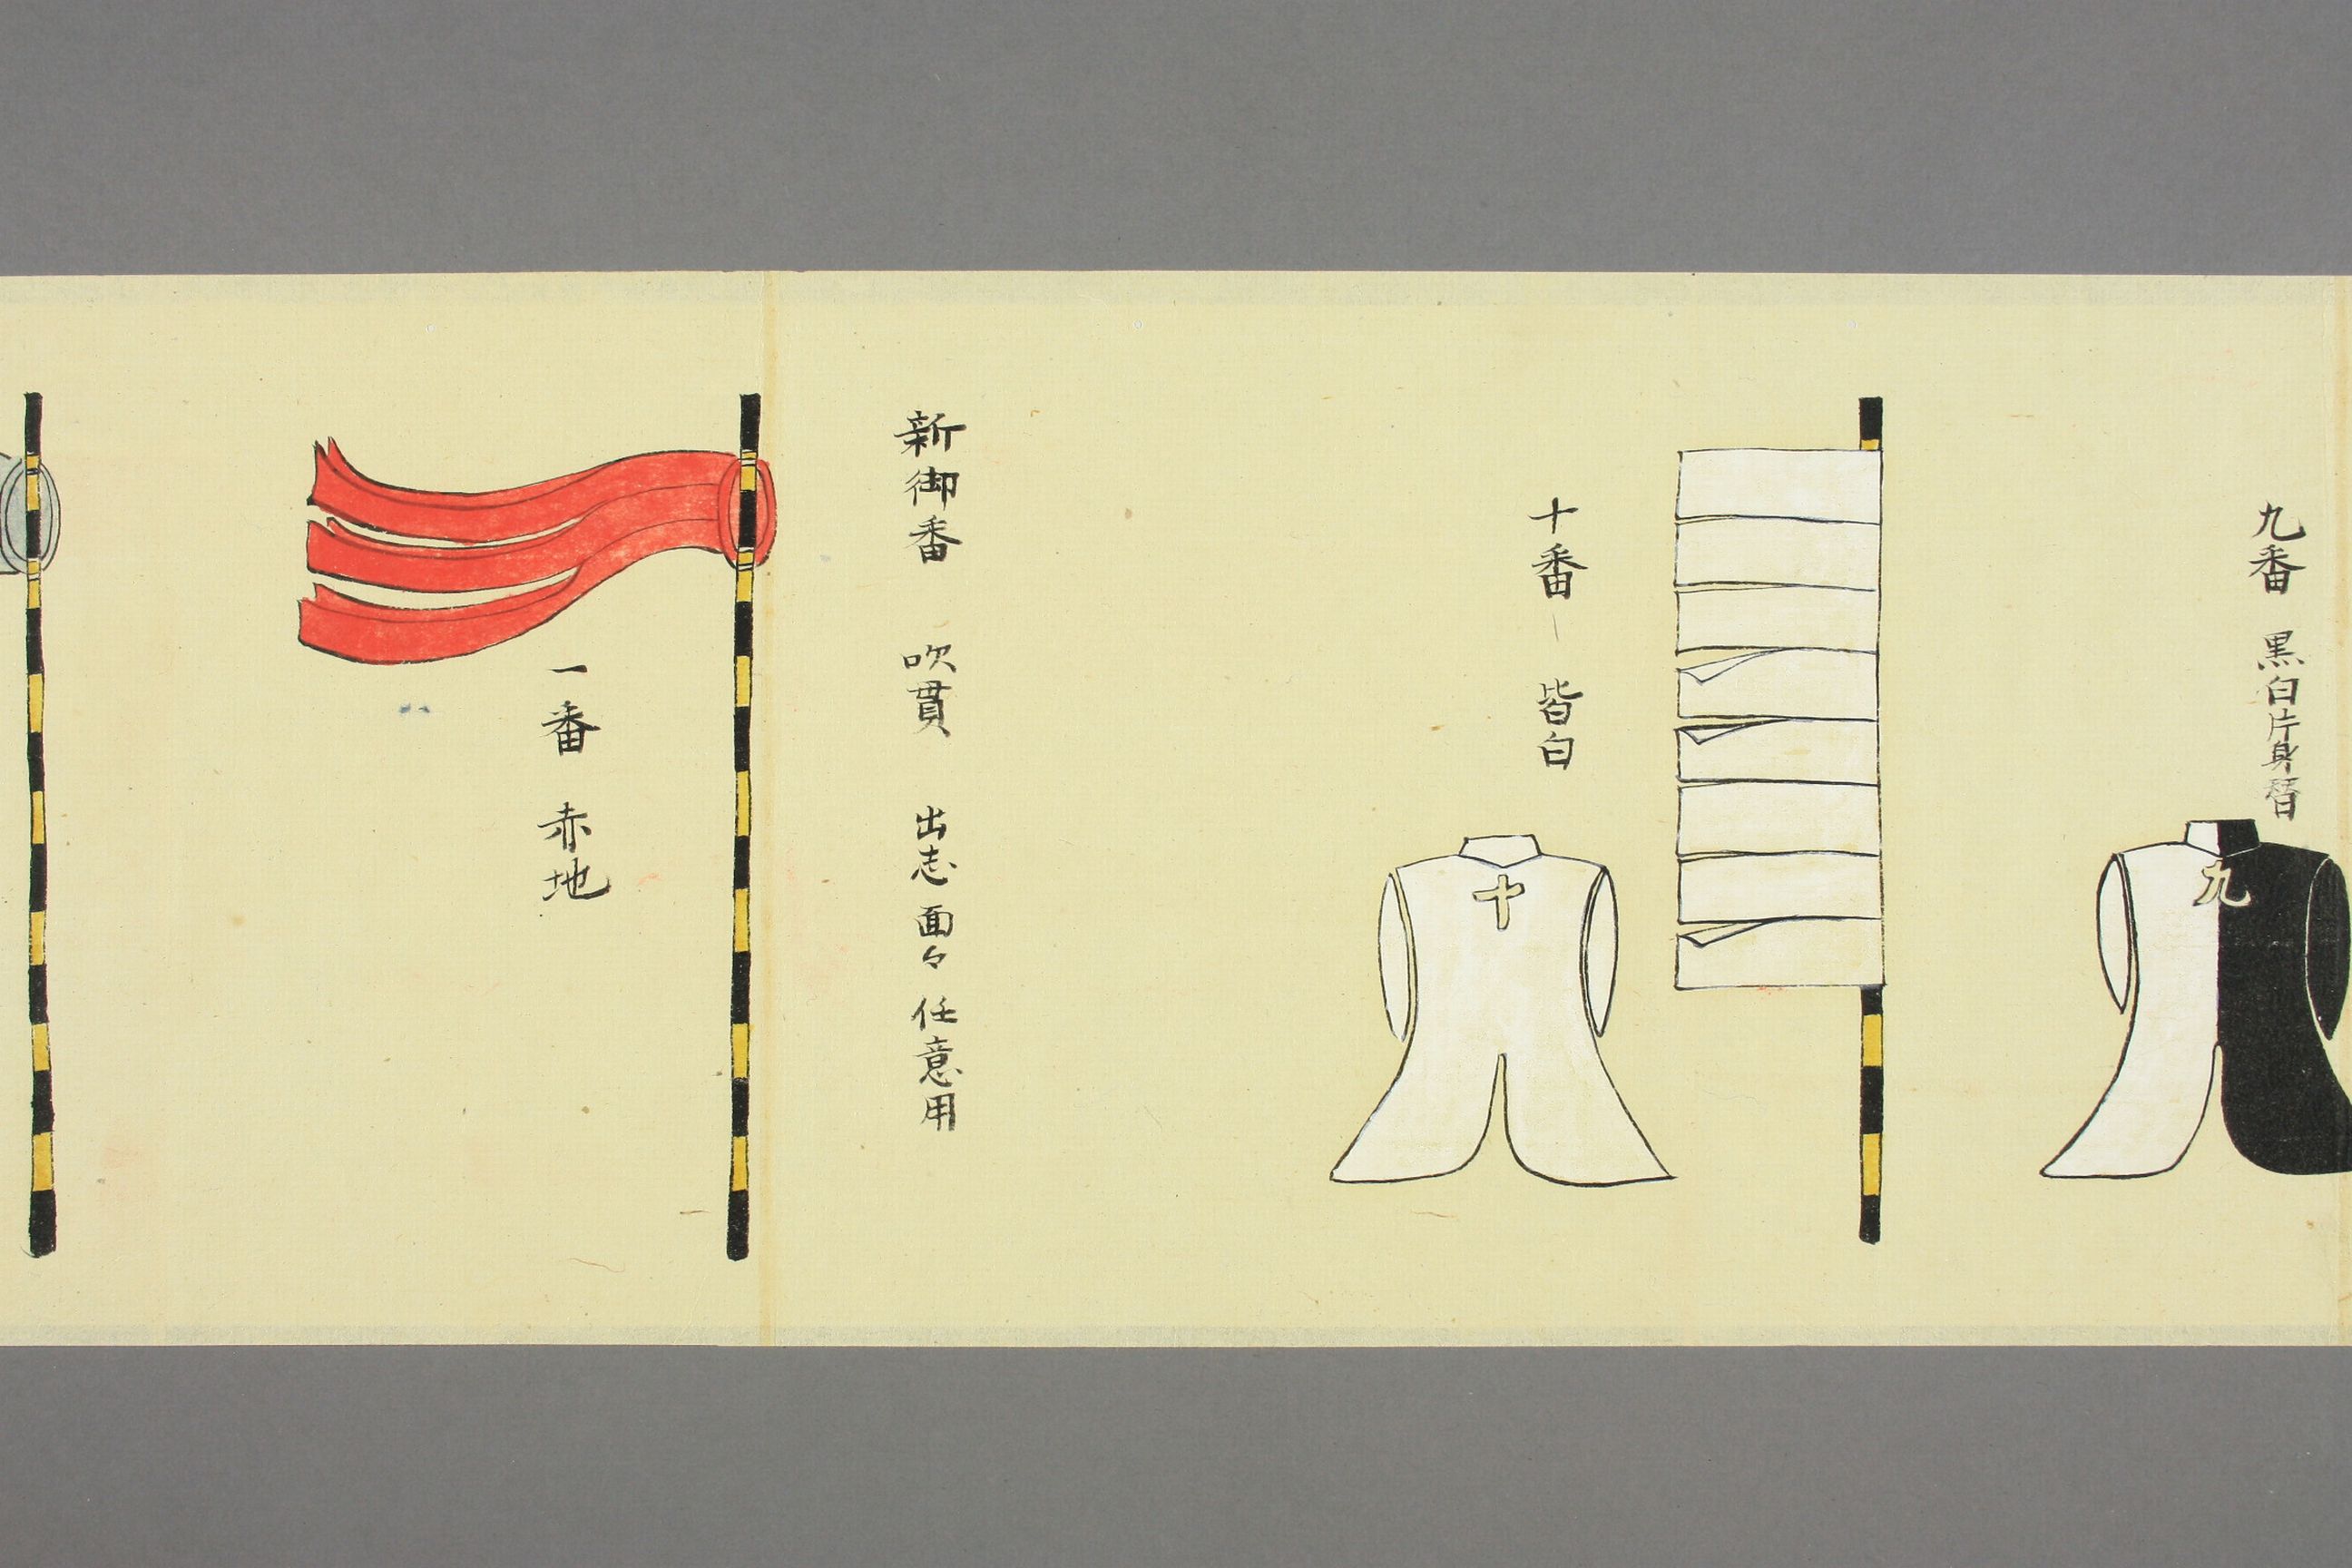 九番　黒白片身替
九
十番　皆白
十
新御番　吹貫　出志面々任意用
一番　赤地